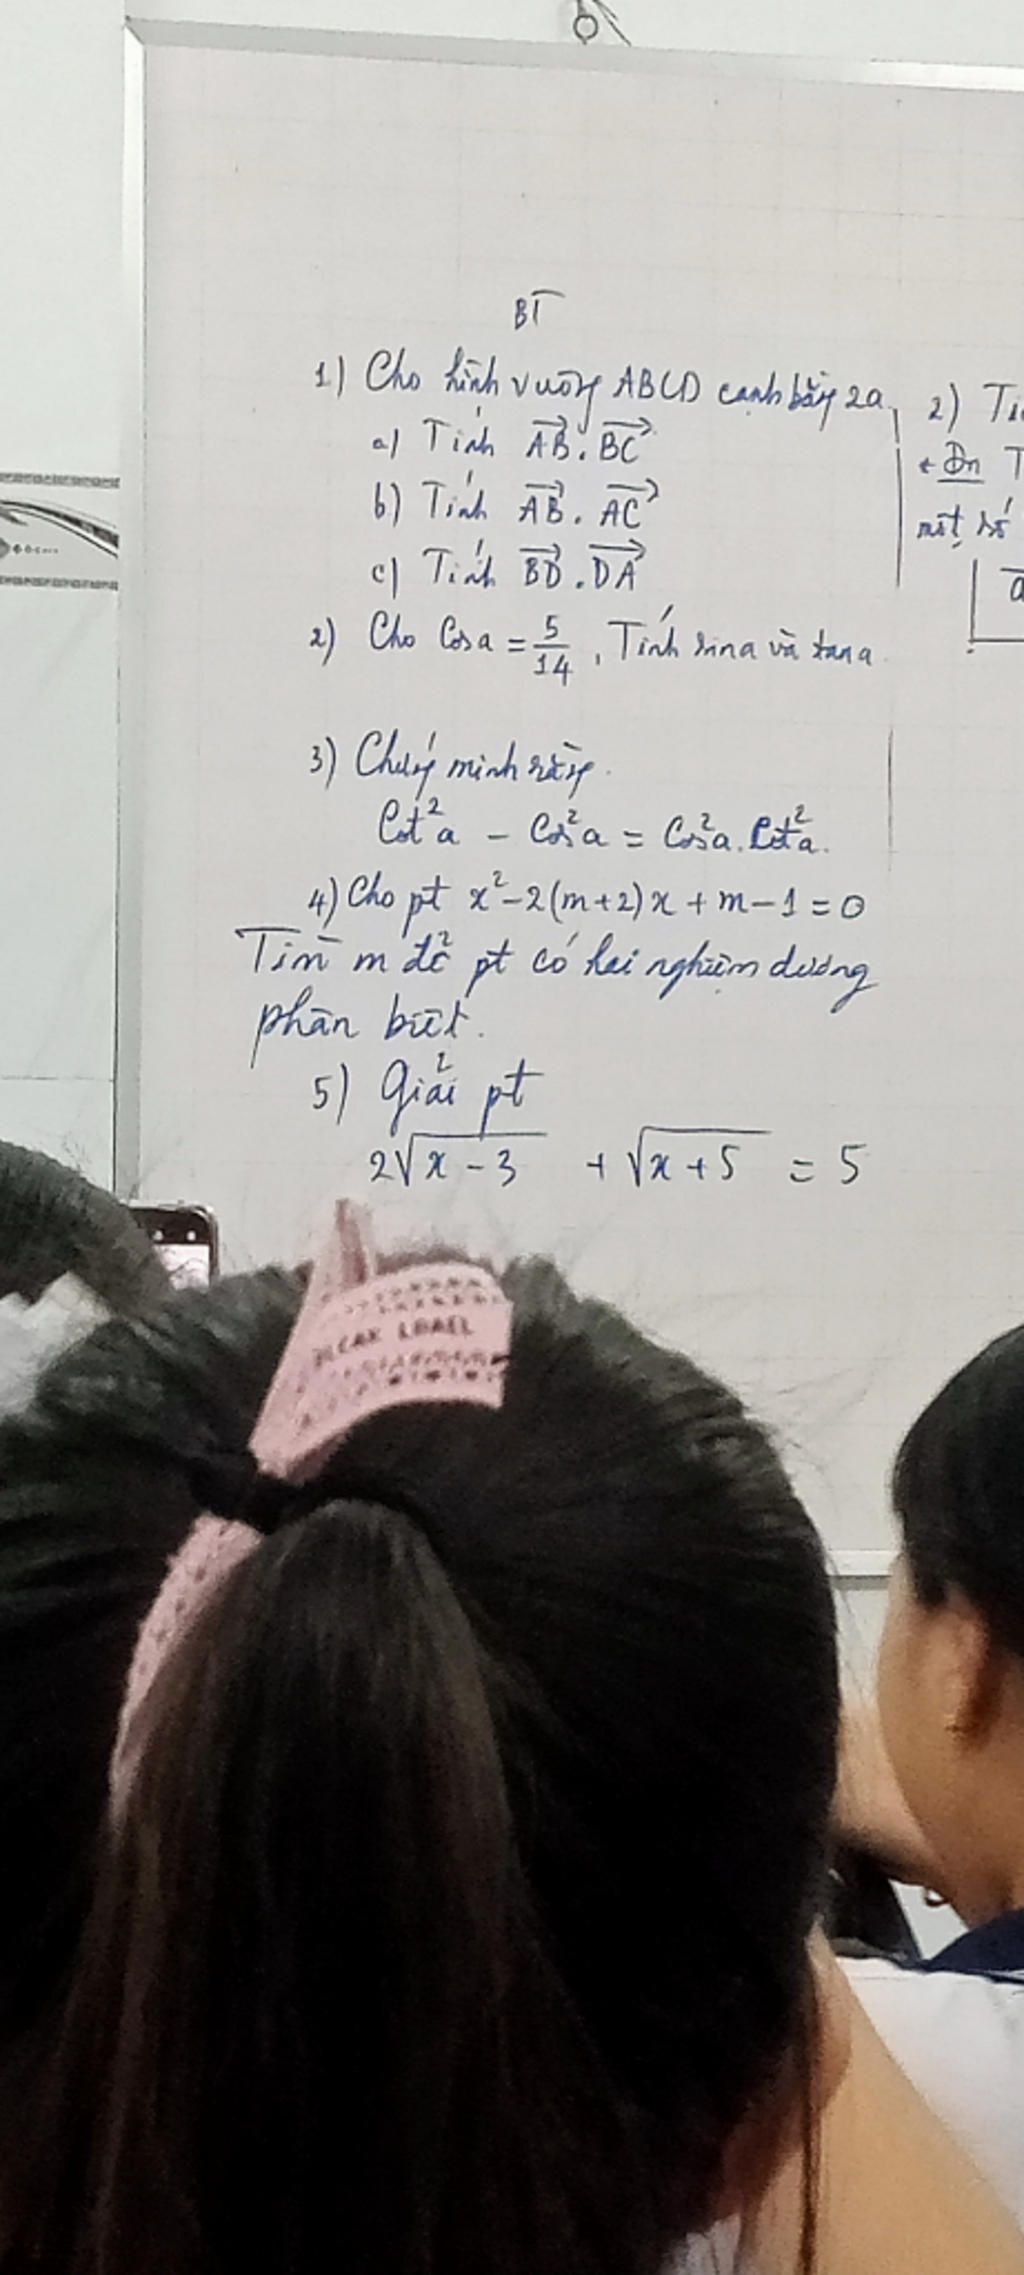 BT
1) Cho hình vuông ABCD cạnh bằng 2a
a) Tính AB⃗ . BC⃗
b) Tính AB⃗ . AC⃗
c) Tính BD⃗ . DA⃗
2) Cho Cosa = 5/14 , Tính sina và tana
3) Chứng minh rằng
Cot²a - Cos²a = Cos²a . Cot²a.
4) Cho pt x² - 2(m+2)x + m - 1 = 0
Tìm m để pt có hai nghiệm dương
phân biệt.
5) Giải pt
2√(x - 3) + √(x + 5) = 5
2)
+ Đn
một số
a